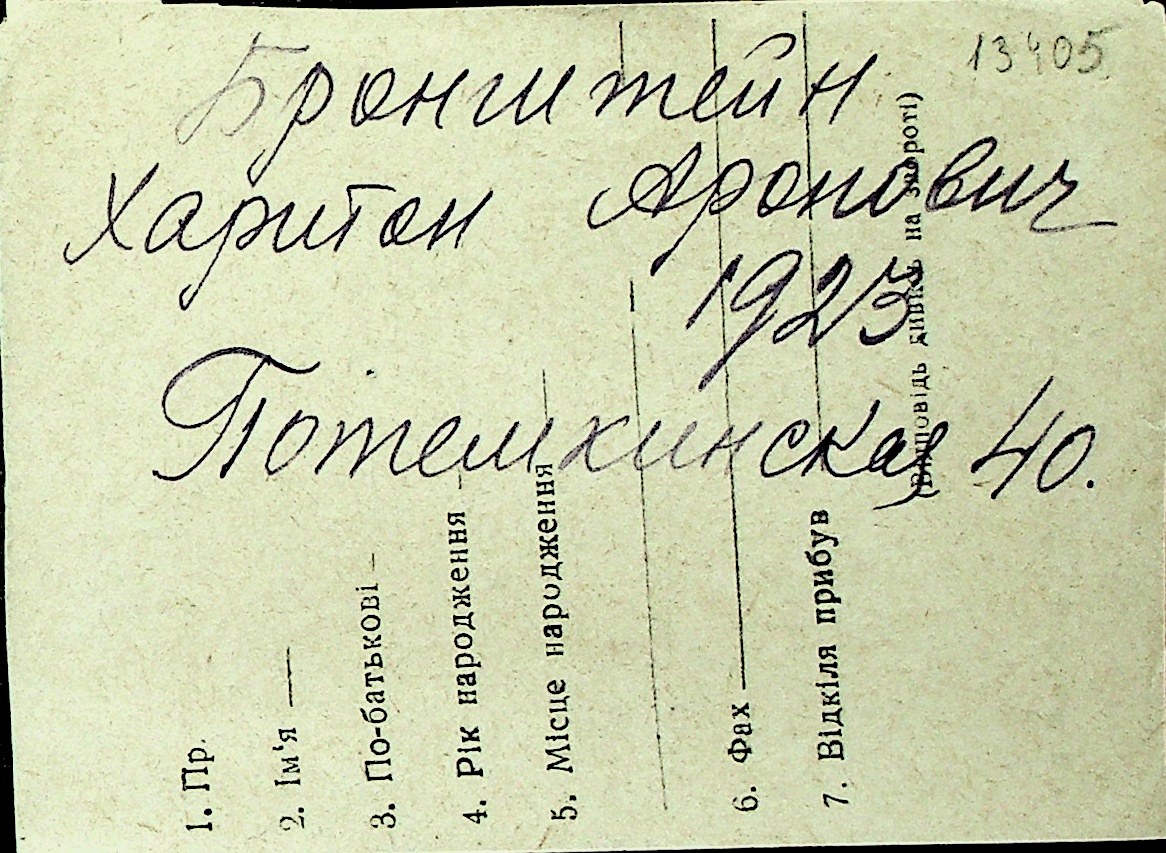 13405
Бронштейн
Харитон Аронович
1923
Потемкинская 40.
1. Пр.
2. Ім'я
3. По-батькові
4. Рік народження
5. Місце народження
6. Фах
7. Відкіля прибув
(Відповідь дивись на звороті)